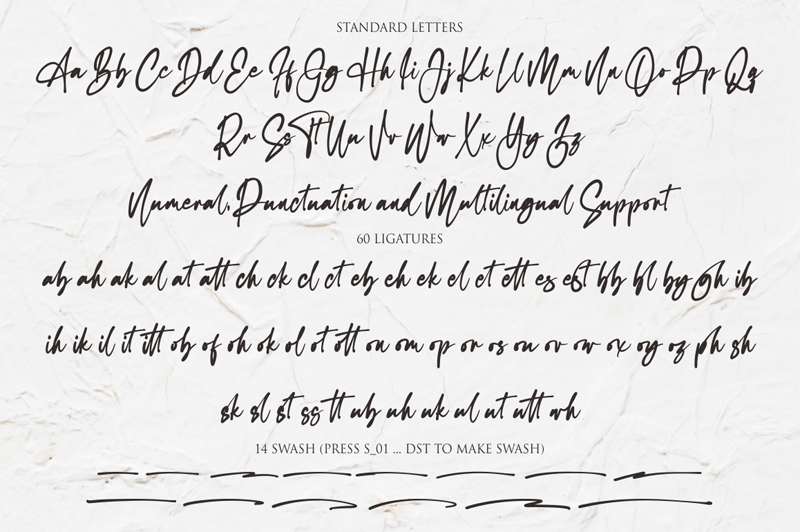 STANDARD LETTERS
Aa Bb Cc Dd Ee Ff Gg Hh Ii Jj Kk Ll Mm Nn Oo Pp Qq
Rr Ss Tt Uu Vv Ww Xx Yy Zz
Numeral, Punctuation and Multilingual Support
60 LIGATURES
ab ah ak al at att ch ck cl ct eb eh ek el et ett es est bb bl by Gh ib
ih ik il it itt ob of oh ok ol ot ott on om op or os ou ov ow ox oy oz ph sh
sk sl st ss tt ub uh uk ul ut utt wh
14 SWASH (PRESS S_01 ... DST TO MAKE SWASH)